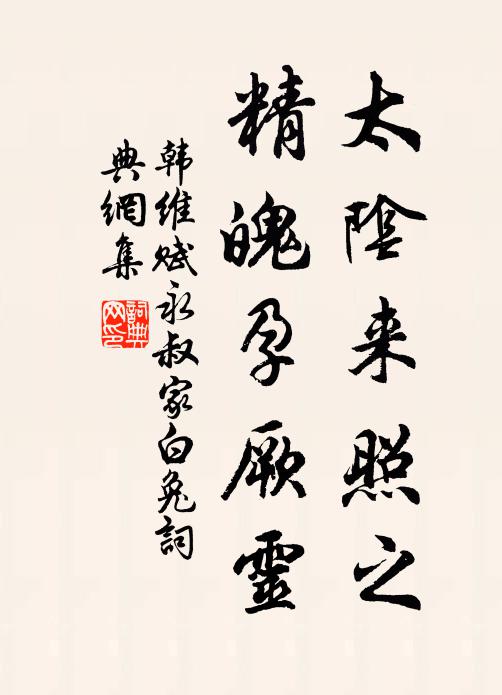 太陰来照之
精魄孕厥靈
韩維赋永叔家白兔詞
典網集
詞典
网印